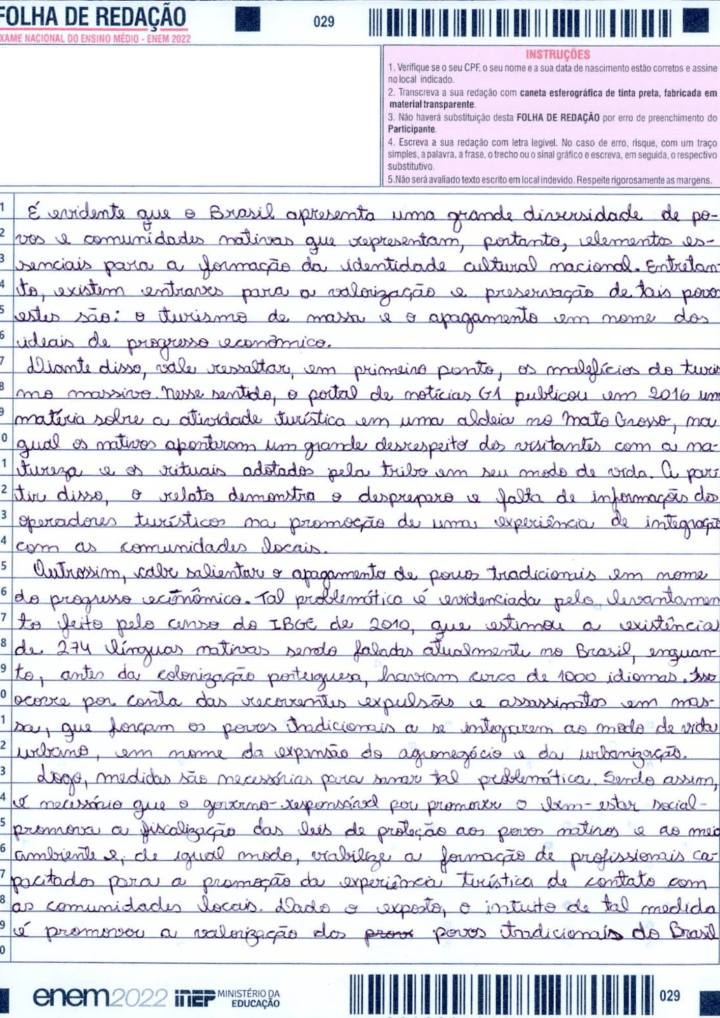 FOLHA DE REDAÇÃO
EXAME NACIONAL DO ENSINO MÉDIO - ENEM 2022
029
INSTRUÇÕES
1. Verifique se o seu CPF, o seu nome e a sua data de nascimento estão corretos e assine
no local indicado.
2. Transcreva a sua redação com caneta esferográfica de tinta preta, fabricada em
material transparente.
3. Não haverá substituição desta FOLHA DE REDAÇÃO por erro de preenchimento do
Participante.
4. Escreva a sua redação com letra legível. No caso de erro, risque, com um traço
simples, a palavra, a frase, o trecho ou o sinal gráfico e escreva, em seguida, o respectivo
substitutivo.
5.Não será avaliado texto escrito em local indevido. Respeite rigorosamente as margens.
1 É evidente que o Brasil apresenta uma grande diversidade de po-
2 vos e comunidades nativas que representam, portanto, elementos es-
3 senciais para a formação da identidade cultural nacional. Entretan-
4 to, existem entraves para a valorização e preservação de tais povos
5 estes são: o turismo de massa e o apagamento em nome dos
6 ideais de progresso econômico.
7 Diante disso, vale ressaltar, em primeiro ponto, os malefícios do turis
8 mo massivo. Nesse sentido, o portal de notícias G1 publicou em 2016 um
9 matéria sobre a atividade turística em uma aldeia no Mato Grosso, na
0 qual os nativos apontaram um grande desrespeito dos visitantes com a na-
1 tureza e os rituais adotados pela tribo em seu modo de vida. A par
2 tir disso, o relato demonstra o despreparo e falta de informação dos
3 operadores turísticos na promoção de uma experiência de integração
4 com as comunidades locais.
5 Outrossim, cabe salientar o apagamento de povos tradicionais em nome
6 do progresso econômico. Tal problemática é evidenciada pelo levantamen
7 to feito pelo censo do IBGE de 2010, que estimou a existência
8 de 274 línguas nativas sendo faladas atualmente no Brasil, enquan-
9 to, antes da colonização portuguesa, haviam cerca de 1000 idiomas. Isso
0 ocorre por conta das recorrentes expulsões e assassinatos em mas-
1 sa, que forçam os povos tradicionais a se integrarem ao modo de vida
2 urbano, em nome da expansão do agronegócio e da urbanização.
3 Logo, medidas são necessárias para sanar tal problemática. Sendo assim,
4 é necessário que o governo-responsável por promover o bem-estar social-
5 promova a fiscalização das leis de proteção aos povos nativos e ao meio
6 ambiente e, de igual modo, viabilize a formação de profissionais ca-
7 pacitados para a promoção da experiência turística de contato com
8 as comunidades locais. Dado o exposto, o intuito de tal medida
9 é promover a valorização dos povos tradicionais do Brasil
0
enem2022 inep MINISTÉRIO DA
EDUCAÇÃO
029